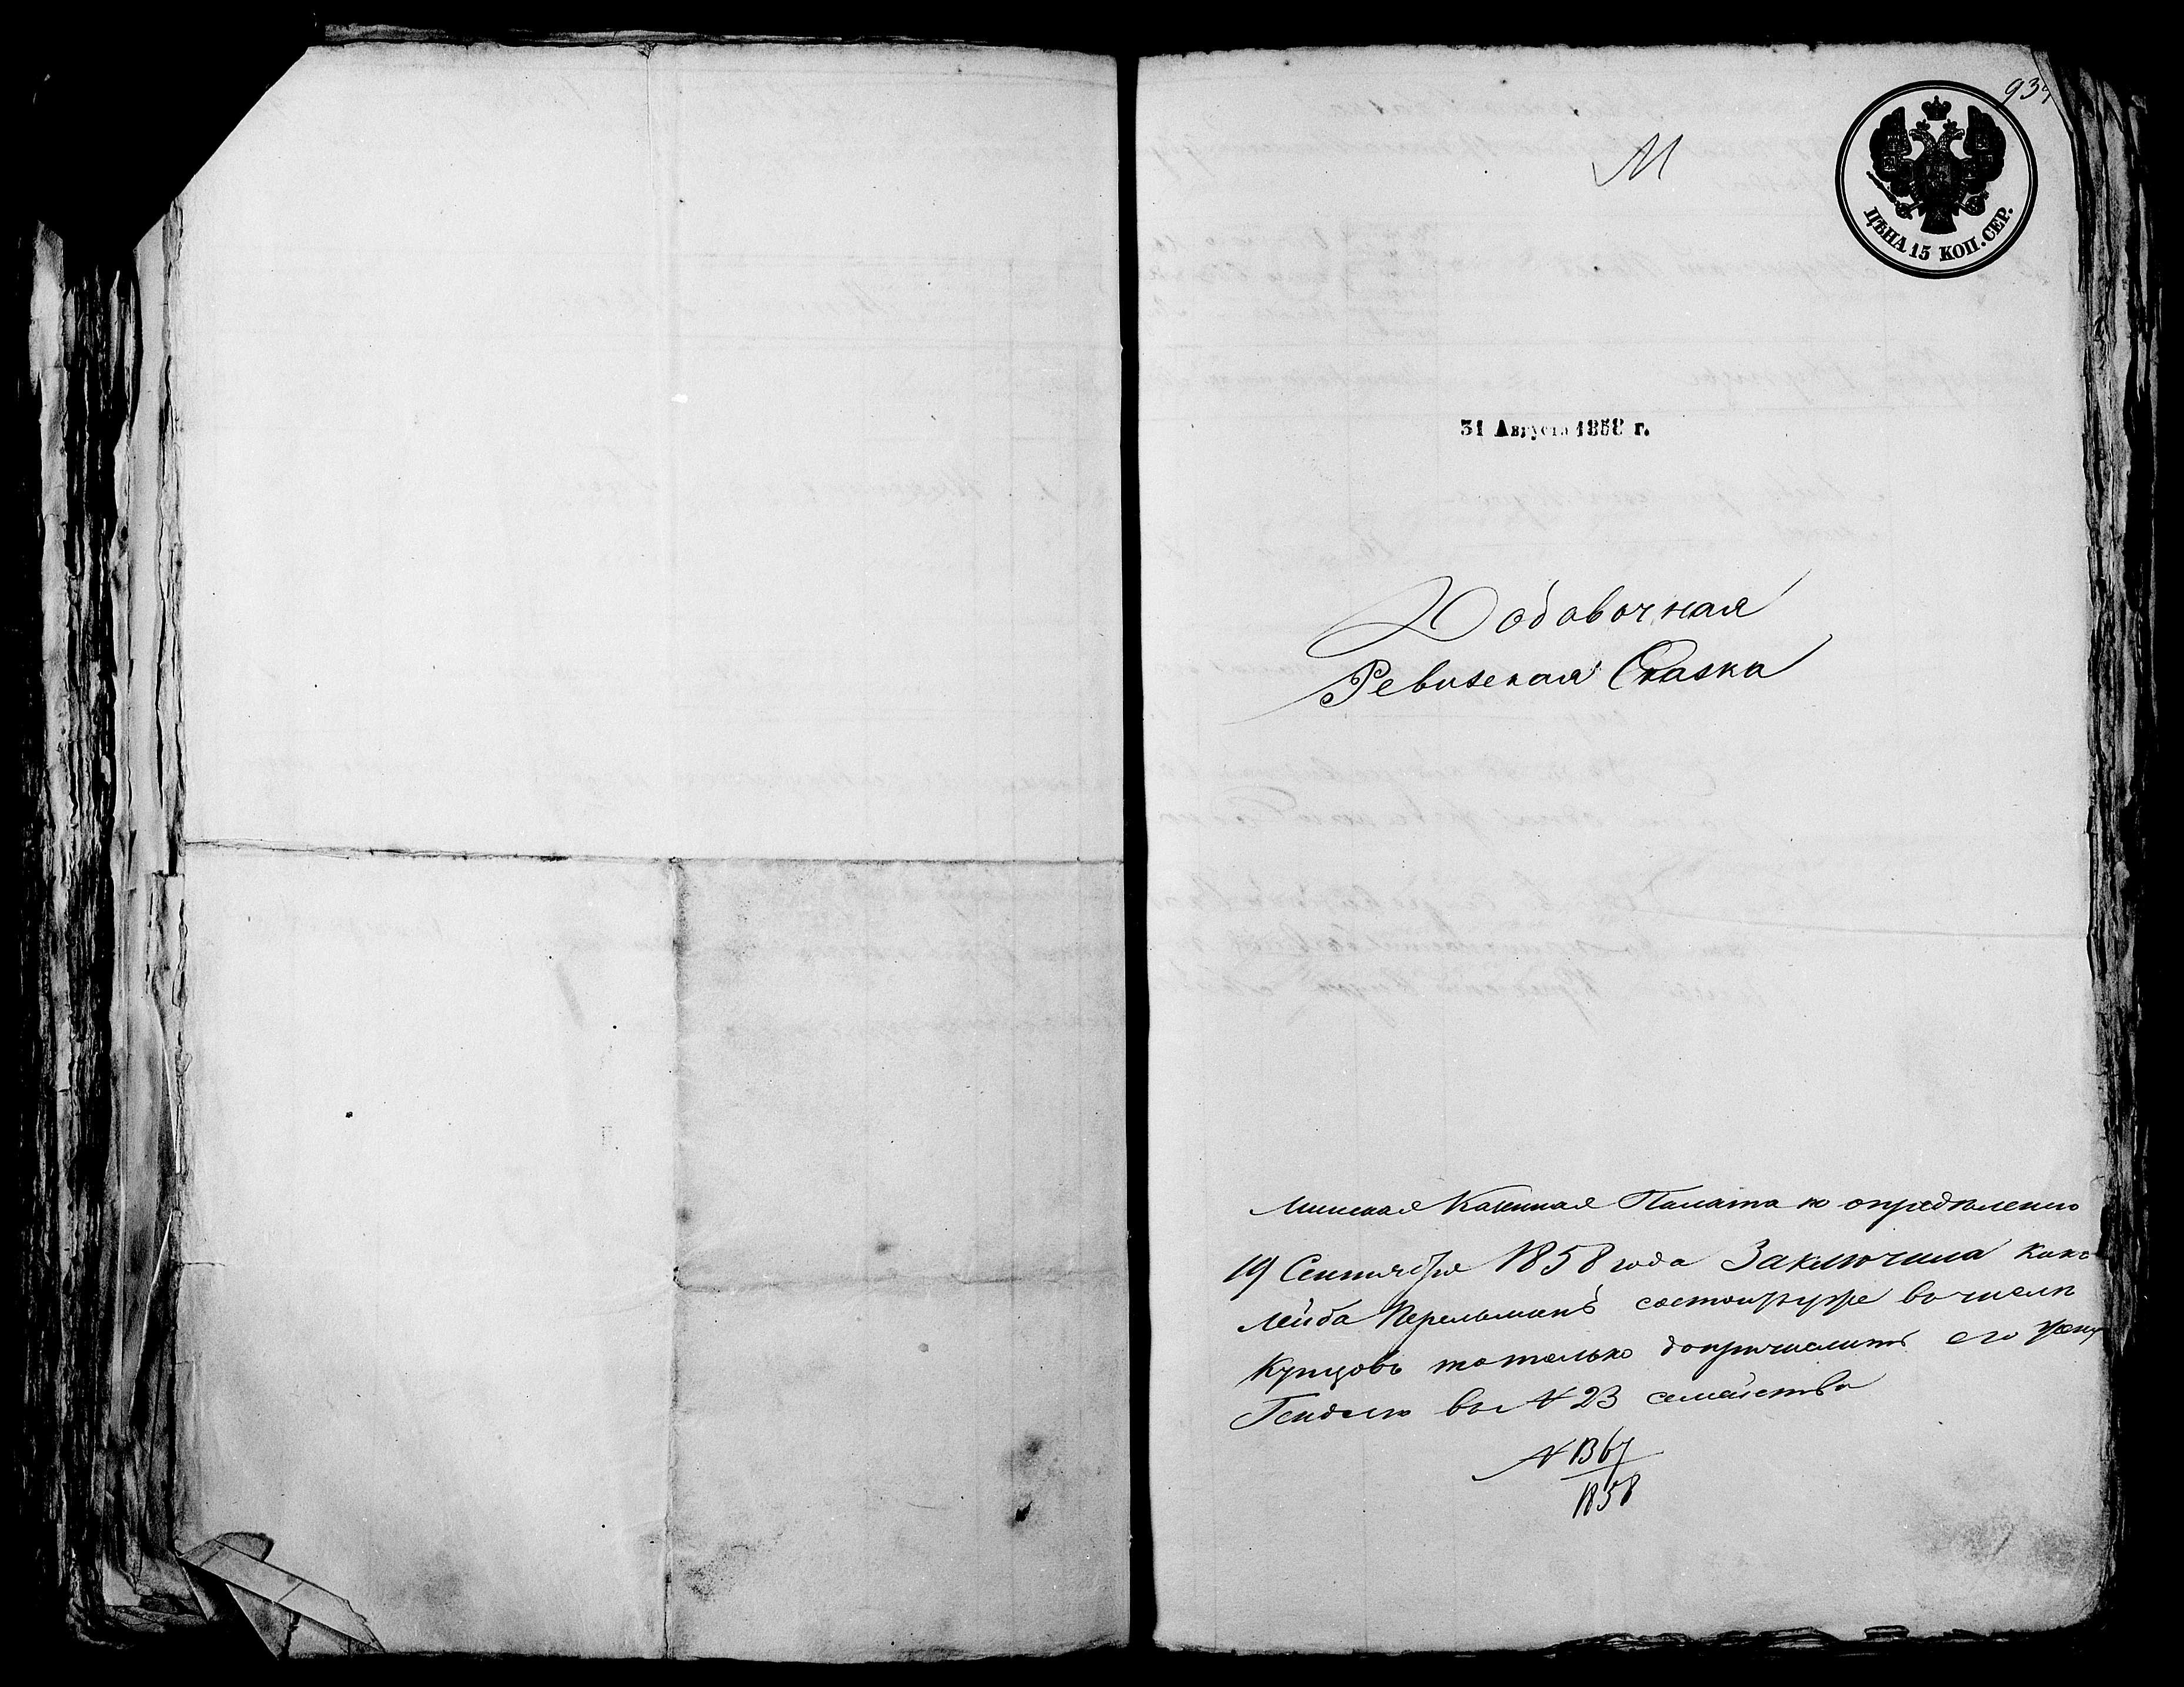 М
ЦѢНА 15 КОП. СЕР.
31 Августа 1858 г.
Добавочная
Ревизская Сказка
Минская Казенная Палата по определению
19 Сентября 1858 года Заключила како
Лейба Перельманъ состоитъ уже въ числе
Купцовъ то только допричислить его жену
Гендлю въ № 23 семейства
№ 1367
1858